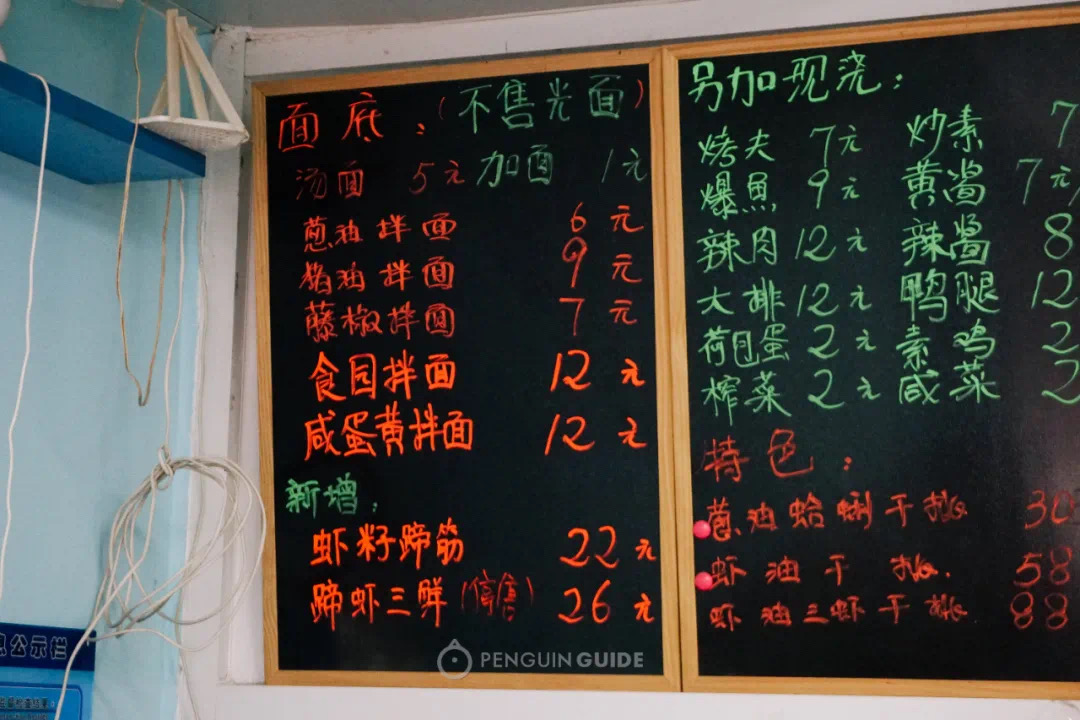 面底：（不售光面）
汤面 5元 加面 1元
葱油拌面 6元
猪油拌面 9元
藤椒拌面 7元
食园拌面 12元
咸蛋黄拌面 12元
新增：
虾籽蹄筋 22元
蹄虾三鲜（停售） 26元
另加现浇：
烤夫 7元 炒素 7
爆鱼 9元 黄酱 7元
辣肉 12元 辣酱 8
大排 12元 鸭腿 12
荷包蛋 2元 素鸡 2
榨菜 2元 咸菜 2
特色：
葱油蛤蜊干挑 30
虾油干挑 58
虾油三虾干挑 88
PENGUIN GUIDE
公示栏